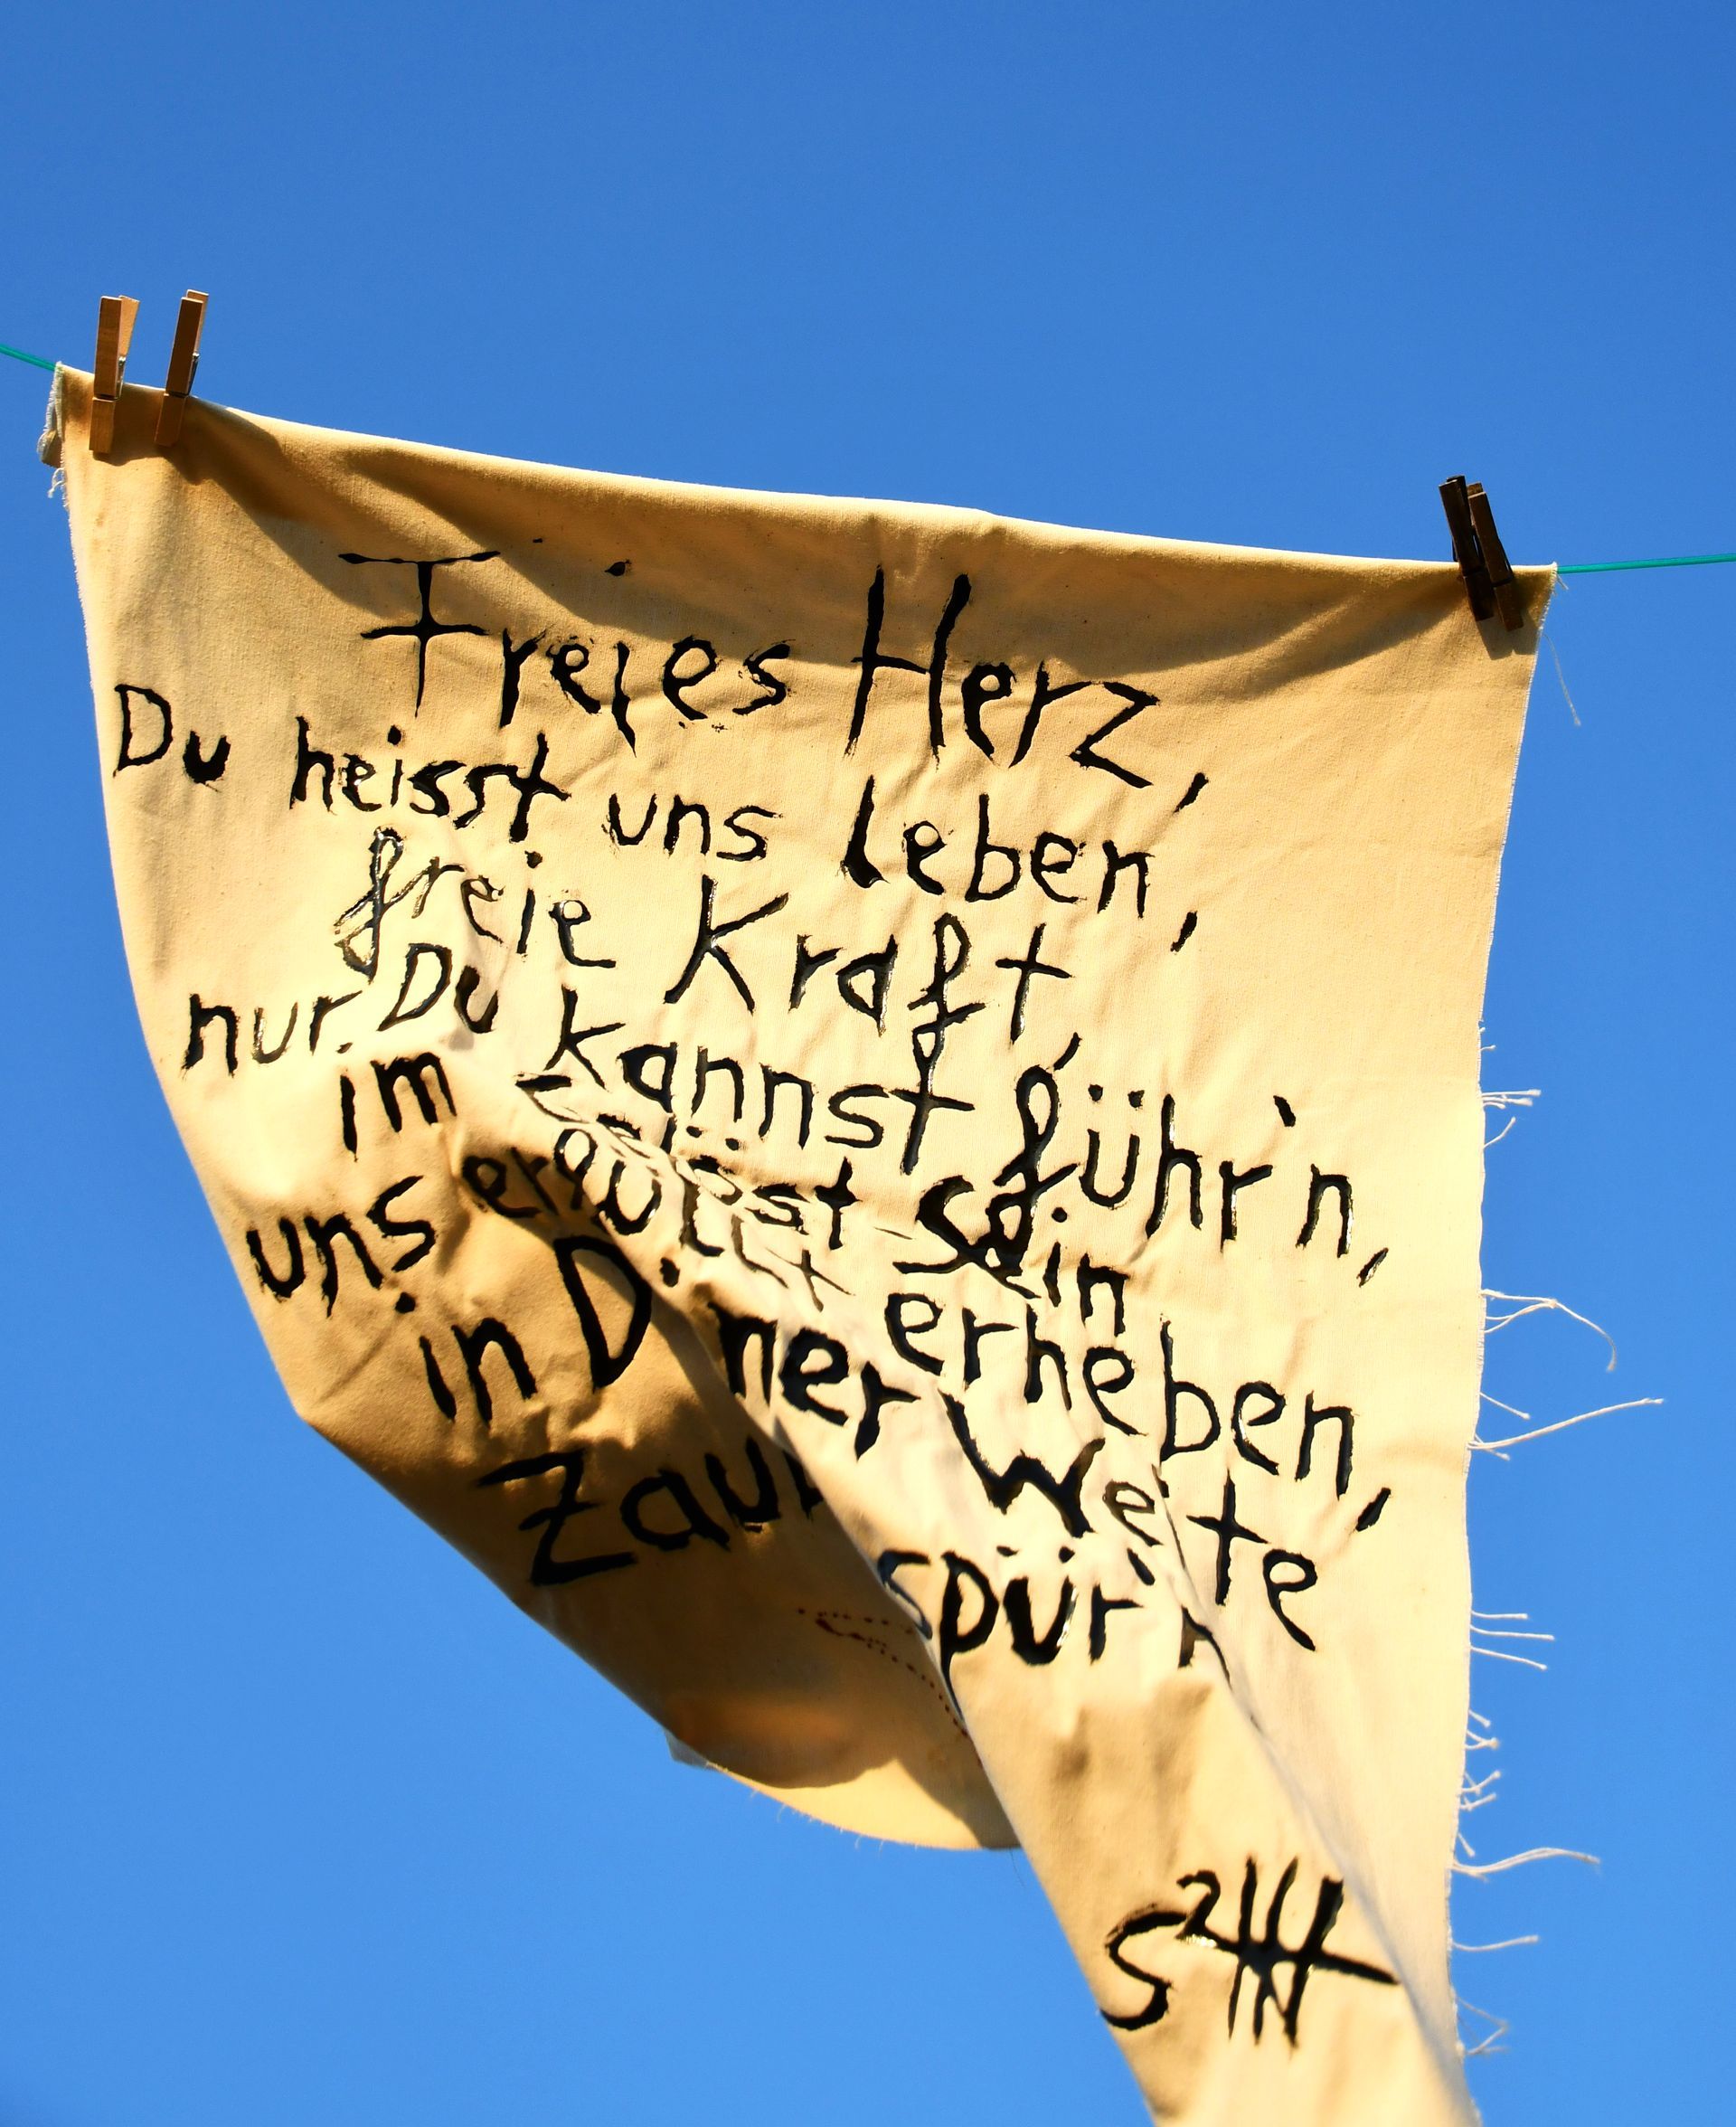 Freies Herz,
Du heisst uns leben,
freie Kraft,
nur Du kannst führ'n,
im sein
uns erfüllt erheben,
in Weite
spür'n